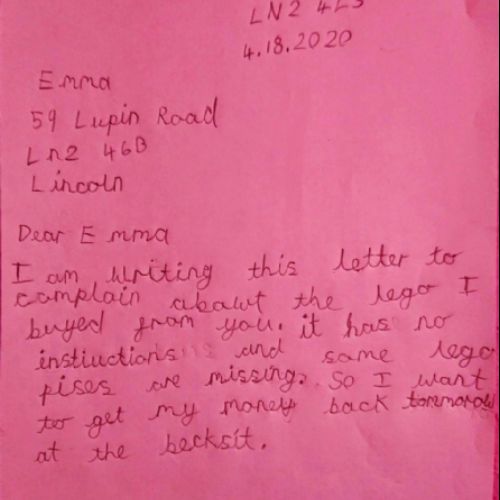 LN2 4LS
4.18.2020
Emma
59 Lupin Road
Ln2 46B
Lincoln
Dear Emma
I am writing this letter to
complain abawt the lego I
buyed from you. it has no
instiuctions and some lego
pises are missing. So I want
to get my money back tomorow
at the becksit.